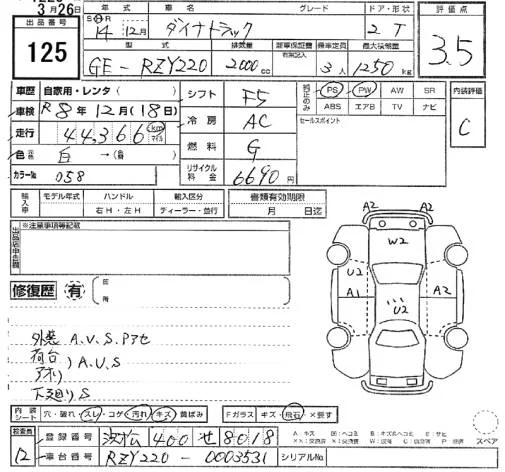 3月26日
出品番号 125
年式 S H R 14年 12月 車名 ダイナトラック グレード ドア・形状 2 T 評価点 3.5
型式 GE-RZY220 排気量 2000cc 新車保証書 有無記入 乗車定員 3人 最大積載量 1250kg
車歴 自家用・レンタ( ) シフト F5 純正のみ PS PW AW SR 内装評価 C
車検 R8年12月(18日) ABS エアB TV ナビ
走行 44,366 km マイル 冷房 AC セールスポイント
色 白→(自) 燃料 G
カラー№ 058 リサイクル料金 6690円
輸入車 モデル年式 ハンドル 右H・左H 輸入区分 ディーラー・並行 書類有効期限 月 日迄
※注意事項等記載
A2 A2
W2
U2
A1 A2
U2
修復歴 有 箇所
外装 A.U.S.Pアセ
荷台
アオリ )A.U.S
下廻り S
内装シート 穴・破れ・スレ・コゲ・汚れ・キズ・黄ばみ Fガラス キズ・飛石・×要す
検査員 12 登録番号 浜松 400 せ 8018 スペア
車台番号 RZY220-0003531 シリアル№